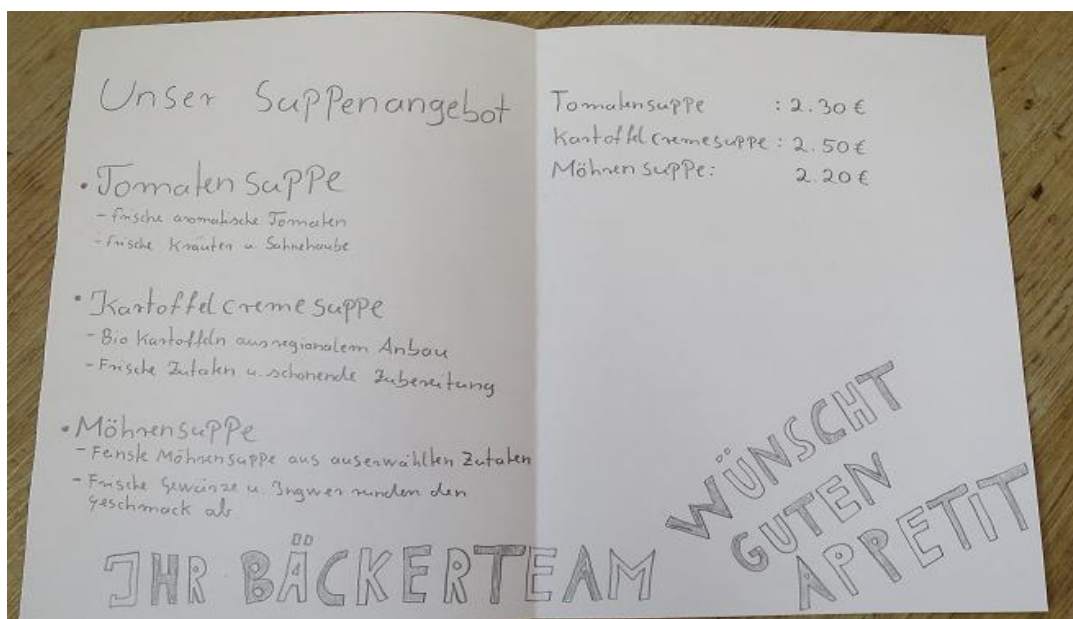 Unser Suppenangebot
• Tomatensuppe
- frische aromatische Tomaten
- frische Kräuter u. Sahnehaube
• Kartoffelcremesuppe
- Bio Kartoffeln aus regionalem Anbau
- Frische Zutaten u. schonende Zubereitung
• Möhrensuppe
- Feinste Möhrensuppe aus auserwählten Zutaten
- Frische Gewürze u. Ingwer runden den
Geschmack ab
IHR BÄCKERTEAM
Tomatensuppe : 2.30 €
Kartoffelcremesuppe : 2.50 €
Möhrensuppe: 2.20 €
WÜNSCHT
GUTEN
APPETIT